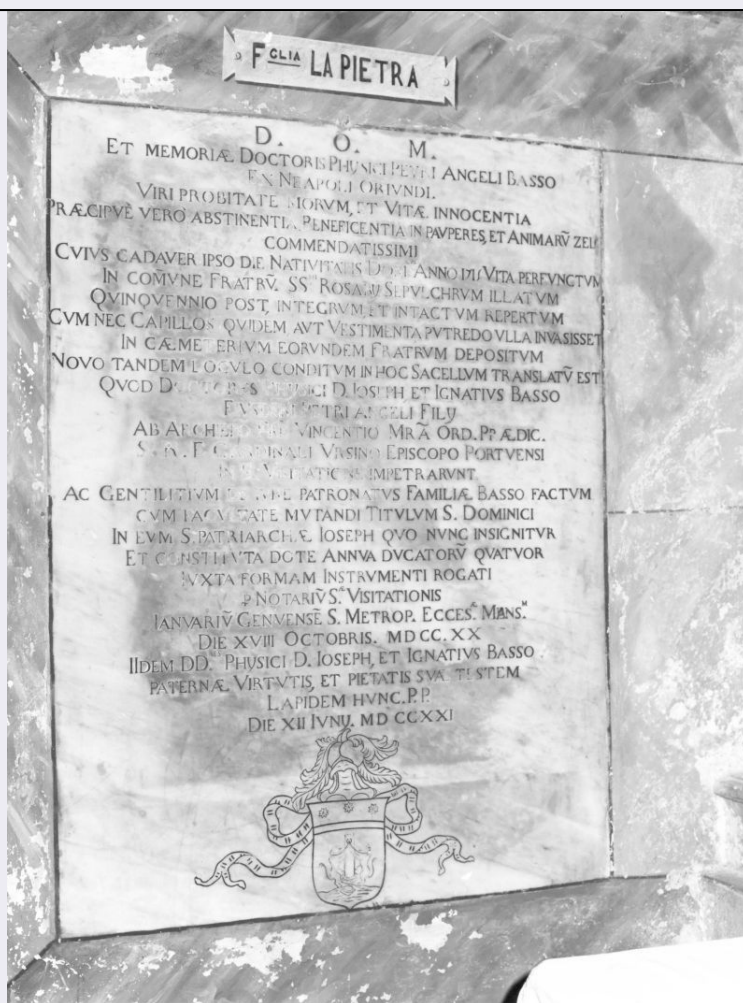 FGLIA LA PIETRA
D. O. M.
ET MEMORIÆ DOCTORIS PHYSICI PETRI ANGELI BASSO
EX NEAPOLI ORIVNDI.
VIRI PROBITATE MORVM, ET VITÆ INNOCENTIA
PRÆCIPVÈ VERO ABSTINENTIA BENEFICENTIA IN PAVPERES, ET ANIMARV̄ ZELO
COMMENDATISSIMI
CVIVS CADAVER IPSO DIE NATIVITATIS ANNO VITA PERFVNCTVM
IN COM̄VNE FRATRV̄. SS ROSARIJ SEPVLCHRVM ILLATVM
QVINQVENNIO POST, INTEGRVM, ET INTACTVM REPERTVM
CVM NEC CAPILLOS QVIDEM AVT VESTIMENTA PVTREDO VLLA INVASISSET
IN CÆMETERIVM EORVNDEM FRATRVM DEPOSITVM
NOVO TANDEM LOCVLO CONDITVM IN HOC SACELLVM TRANSLATV̄ EST
QVOD PHYSICI D. IOSEPH ET IGNATIVS BASSO
PETRI ANGELI FILIJ
AB VINCENTIO MR̄A ORD. PR̄ÆDIC.
VRSINO EPISCOPO PORTVENSI
IMPETRARVNT
AC GENTILITIVM PATRONATVS FAMILIÆ BASSO FACTVM
CVM FACVLTATE MVTANDI TITVLVM S. DOMINICI
IN EVM S. PATRIARCHÆ IOSEPH QVO NVNC INSIGNITVR
ET CONSTITVTA DOTE ANNVA DVCATORV̄ QVATVOR
IVXTA FORMAM INSTRVMENTI ROGATI
NOTARIV̄ S. VISITATIONIS
IANVARIV̄ GENVENSĒ S. METROP. ECCES. MANS.
DIE XVIII OCTOBRIS. MD CC. XX
IIDEM DD. PHYSICI D. IOSEPH, ET IGNATIVS BASSO
PATERNÆ VIRTVTIS, ET PIETATIS SVÆ TESTEM
LAPIDEM HVNC. P.P.
DIE XII IVNIJ. MD CCXXI